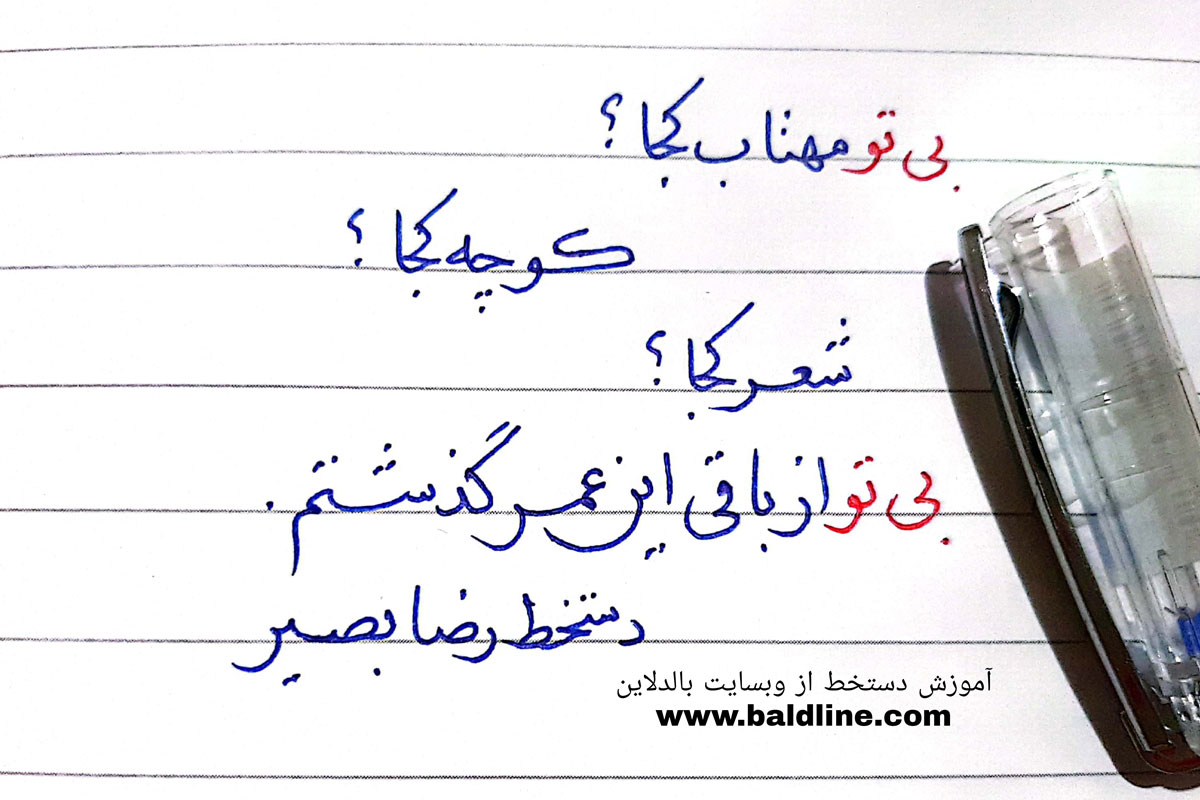 بی تو مهتاب کجا ؟
کوچه کجا ؟
شعر کجا ؟
بی تو از باقی این عمر گذشتم .
دستخط رضا بصیر
آموزش دستخط از وبسایت بالدلاین
www.baldline.com